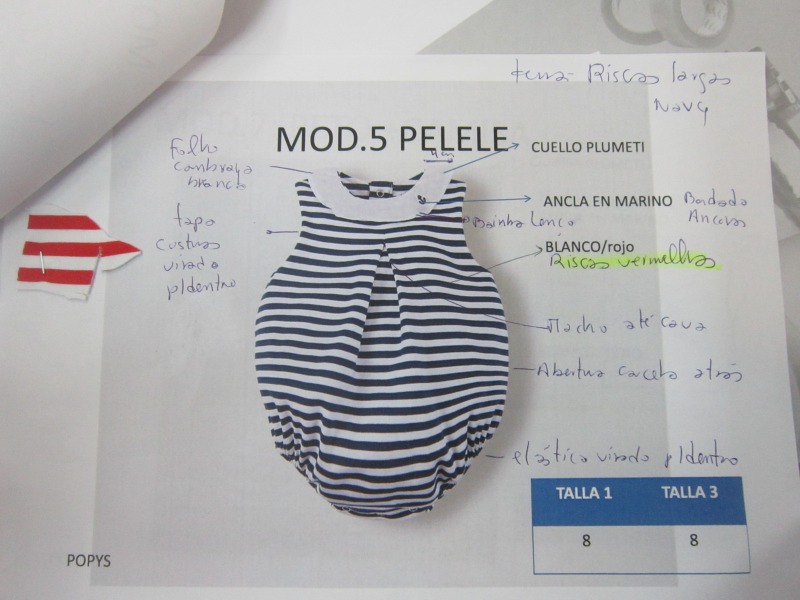 tema- Riscas largas
Navy
MOD.5 PELELE
4cm
CUELLO PLUMETI
Folho
cambraia
branca
ANCLA EN MARINO Bordado
Ancoras
Bainha lenço
tapa
custuras
virado
p/dentro
BLANCO/rojo
Riscas vermelhas
Macho até cava
Abertura carcela atrás
elástico virado p/dentro
TALLA 1 TALLA 3
8 8
POPYS